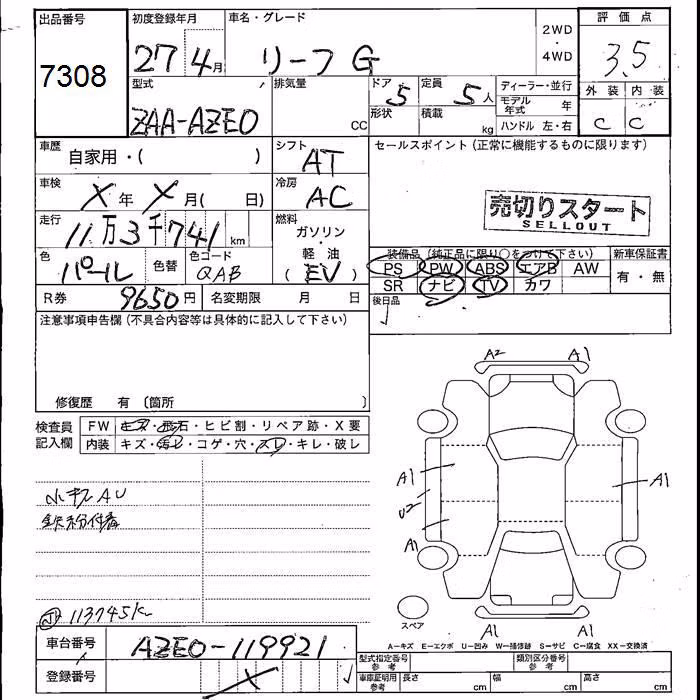 出品番号 初度登録年月 車名・グレード 2WD・4WD 評価点
7308 27 4月 リーフ G 3.5
型式 排気量 ドア 5 定員 5人 ディーラー・並行 外装 内装
ZAA-AZE0 CC 形状 積載 kg モデル年式 年 C C
ハンドル 左・右
車歴 自家用・( ) シフト AT セールスポイント(正常に機能するものに限ります)
車検 X年 X月( 日) 冷房 AC
売切りスタート
SELLOUT
走行 11万3千741km 燃料 ガソリン・軽油
(EV)
色 パール 色替 色コード QAB
装備品(純正品に限り○をつけて下さい) 新車保証書
PS PW ABS エアB AW 有・無
SR ナビ TV カワ
R券 9650円 名変期限 月 日
後日品
注意事項申告欄(不具合内容等は具体的に記入して下さい)
修復歴 有 〔箇所 〕
検査員記入欄 FW キズ・飛石・ヒビ割・リペア跡・X要
内装 キズ・汚レ・コゲ・穴・スレ・キレ・破レ
A2 A1
A1 A1
U2
A1
小キズAU
鉄粉付着
113745K
スペア
A1 A1
A-キズ E-エクボ U-凹み W-補修跡 S-サビ C-腐食 XX-交換済
車台番号 AZE0-119921
登録番号 X
型式指定番号 参考 類別区分番号 参考
車庫証明用 参考 長さ cm 幅 cm 高さ cm